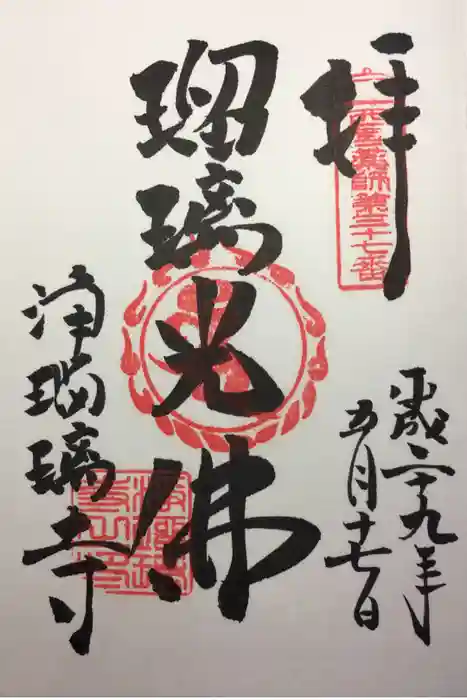 拝
西國薬師第三十七番
平成二十九年
五月十七日
瑠璃光佛
浄瑠璃寺